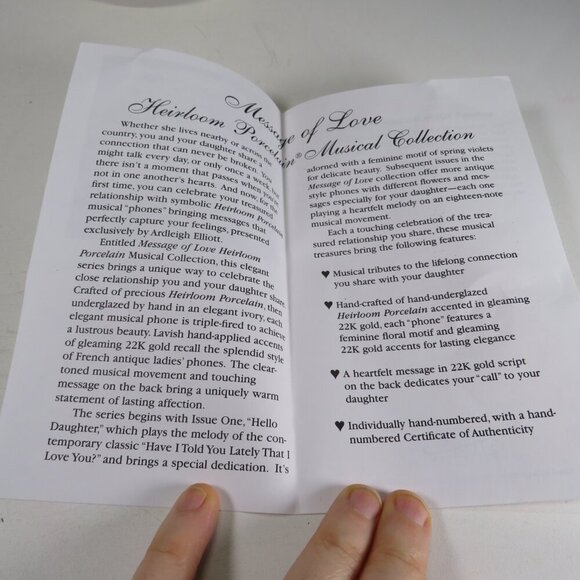 Message of Love
Heirloom Porcelain® Musical Collection
Whether she lives nearby or across the
country, you and your daughter share a
connection that can never be broken. You
might talk every day, or only once a week, but
there isn't a moment that passes when you're
not in one another's hearts. And now, for the
first time, you can celebrate your treasured
relationship with symbolic Heirloom Porcelain
musical "phones" bringing messages that
perfectly capture your feelings, presented
exclusively by Ardleigh Elliott.
Entitled Message of Love Heirloom
Porcelain Musical Collection, this elegant
series brings a unique way to celebrate the
close relationship you and your daughter share.
Crafted of precious Heirloom Porcelain, then
underglazed by hand in an elegant ivory, each
elegant musical phone is triple-fired to achieve
a lustrous beauty. Lavish hand-applied accents
of gleaming 22K gold recall the splendid style
of French antique ladies' phones. The clear-
toned musical movement and touching
message on the back bring a uniquely warm
statement of lasting affection.
The series begins with Issue One, "Hello
Daughter," which plays the melody of the con-
temporary classic "Have I Told You Lately That I
Love You?" and brings a special dedication. It's
adorned with a feminine motif of spring violets
for delicate beauty. Subsequent issues in the
Message of Love collection offer more antique
style phones with different flowers and mes-
sages especially for your daughter—each one
playing a heartfelt melody on an eighteen-note
musical movement.
Each a touching celebration of the trea-
sured relationship you share, these musical
treasures bring the following features:
♥ Musical tributes to the lifelong connection
you share with your daughter
♥ Hand-crafted of hand-underglazed
Heirloom Porcelain accented in gleaming
22K gold, each "phone" features a
feminine floral motif and gleaming
22K gold accents for lasting elegance
♥ A heartfelt message in 22K gold script
on the back dedicates your "call" to your
daughter
♥ Individually hand-numbered, with a hand-
numbered Certificate of Authenticity